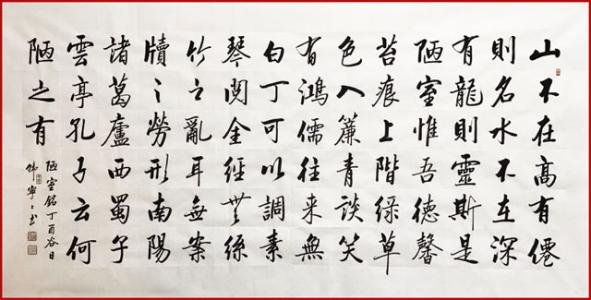 山不在高有僊
則名水不在深
有龍則靈斯是
陋室惟吾德馨
苔痕上階綠草
色入簾青談笑
有鴻儒往来無
白丁可以調素
琴閱金經無絲
竹之亂耳無案
牘之勞形南陽
諸葛廬西蜀子
雲亭孔子云何
陋之有
陋室銘丁酉谷日